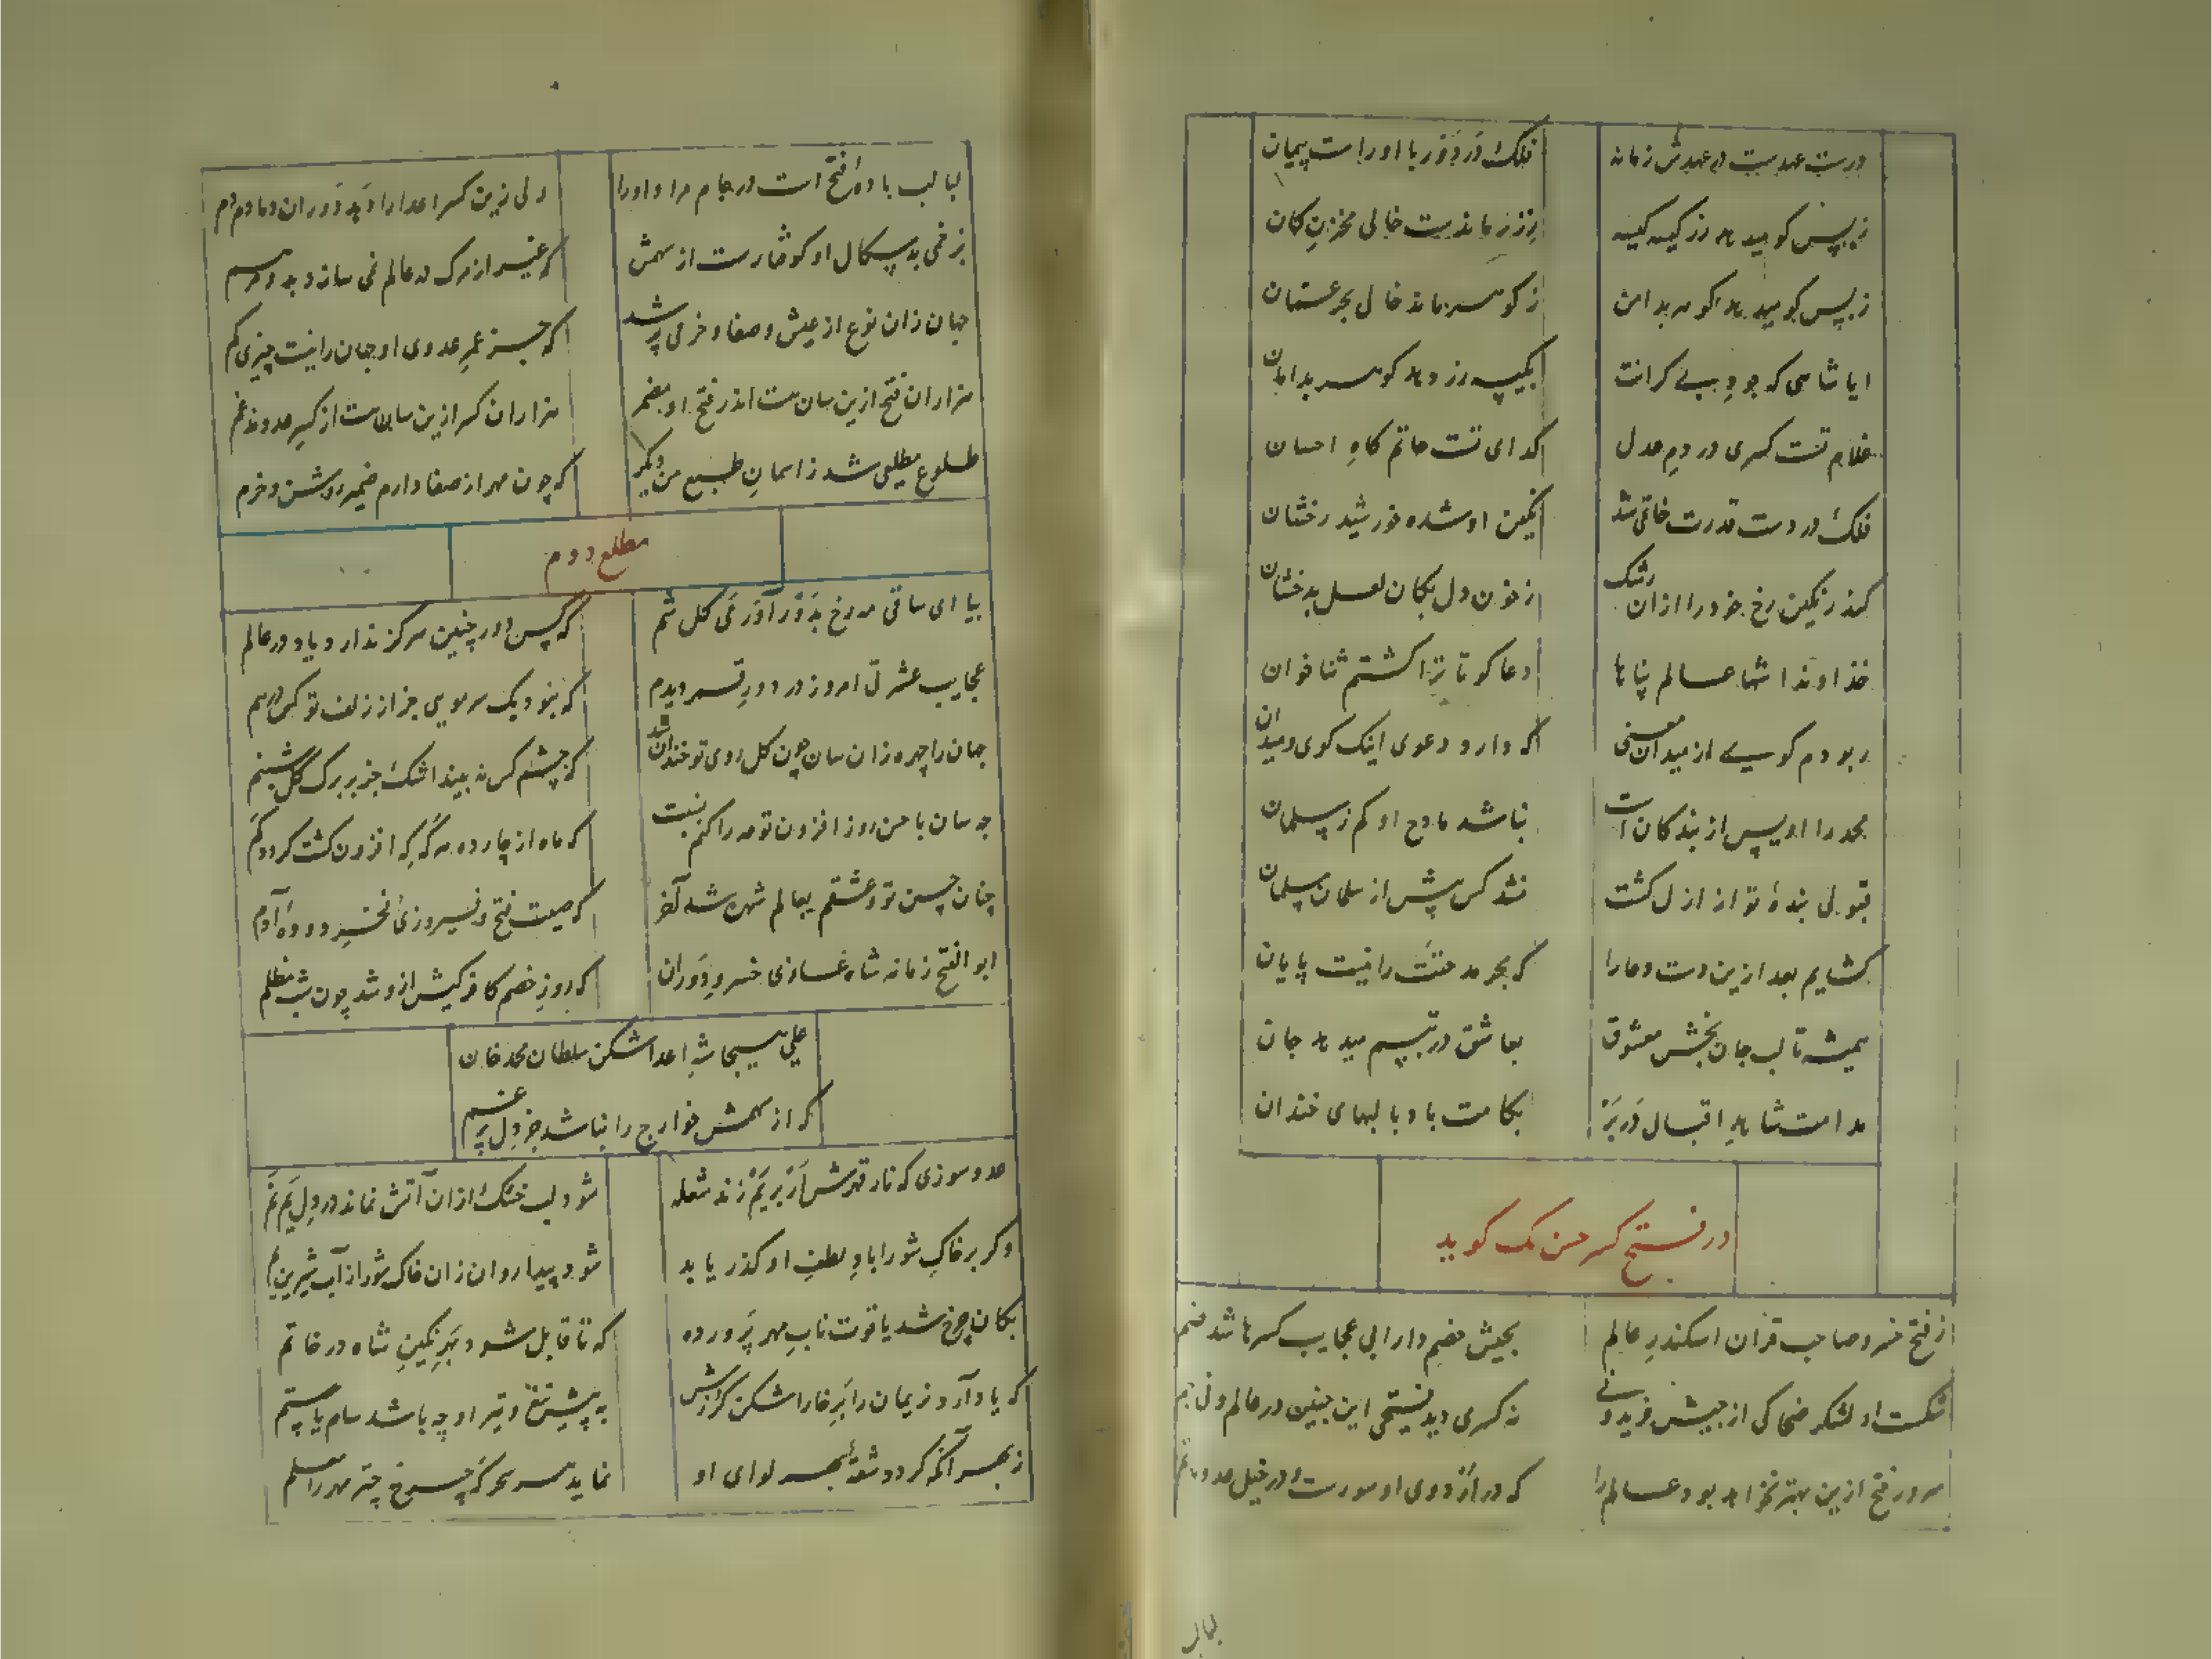 درست عهدیست در عهدش زمانه
فلک در دور با او راست پیمان
ز بس کو میدهد زر کیسه کیسه
ز زر ماندست خالی مخزن کان
ز بس کو میدهد کوهر بدامن
ز کوهر ماند خالی بحر عمان
ایا شاهی که جود بی کرانت
بکیسه زر دهد کوهر بدامان
غلام تست کسری در دم عدل
کدای تست حاتم کاه احسان
فلک در دست قدرت خاتمی شد
نکین او شده خورشید رخشان
کند رنکین رخ خود را از ان رشک
ز خون دل بکان لعل بدخشان
خداوندا شها عالم پناها
دعاکو تا ترا کشتم ثناخوان
ربودم کویی از میدان معنی
که دارد دعوی اینک کوی و میدان
محمد را اویس از بندکان است
نباشد مادح او کم ز سلمان
قبولی بندهٔ تو از ازل کشت
نشد کس پیش از سلمان سلمان
کشایم بعد ازین دست دعا را
که بحر مدحتت را نیست پایان
همیشه تا لب جان بخش معشوق
بعاشق در تبسم میدهد جان
مدامت شاهد اقبال در بر
بکامت باد با لبهای خندان
در فتح کسر حسن بک کوید
از فتح خسرو صاحب قران اسکندر عالم
بجیش خصم دارایی عجایب کسرها شد ضم
شکست او لشکر ضحاکی از جیش فریدونی
نه کسری دید فتحی این چنین در عالم و نی جم
سرور فتح ازین بهتر نخواهد بود عالم را
که در اردوی او سورست و در خیل عدو ماتم
لبالب
لبالب بادهٔ فتح است در جام مراد او را
ولی زین کسر اعدا را دهد دوران دمادم دم
بزخمی بدسکال او کرفتارست از سهمش
که غیر از مرک در عالم نمی سازد بدو مرهم
جهان زان نوع از عیش و صفا و خرمی پر شد
که جز عمر عدوی او جهان را نیست چیزی کم
هزاران فتح ازین سان هست اندر فتح او مضمر
هزاران کسر ازین سان هست از کسر عدو مدغم
طلوع مطلعی شد ز اسمان طبع من دیکر
که چون مهر از صفا دارم ضمیر روشن و خرم
مطلع دوم
بیا ای ساقی مه رخ بدور آور می کل شم
که کس دور چنین هرکز ندارد یاد در عالم
عجایب عشرتی امروز در دور قمر دیدم
که نبود یک سر مویی جز از زلف تو کس درهم
جهان را چهره زان سان چون کل روی تو خندان شد
که چشم کس نه بیند اشک جز بر برک کل شبنم
چه سان با حسن روز افزون تو مه را کنم نسبت
که ماه از چارده مه که که افزون کشت کردد کم
چنان حسن تو و عشقم بعالم شهره شد آخر
که صیت فتح و فیروزی فخر دودهٔ آدم
ابو الفتح زمانه شاه غازی خسرو دوران
که روز خصم کافر کیش ازو شد چون شب مظلم
علی سیما شه اعدا شکن سلطان محمد خان
که از سهمش خوارج را نباشد جز دل پر غم
عدو سوزی که نار قهرش ار بر یم زند شعله
شود لب خشک از ان آتش نماند در دل یم نم
وکر بر خاک شورا باد لطف او کذر یابد
شود پیدا روان زان خاک شور از آب شیرین یم
بکان چرخ شد یاقوت ناب مهر پرورده
که تا قابل شود بهر نکین شاه در خاتم
که یاد آرد نریمان را بر خارا شکن کرزش
به پیش تیغ و تیر او چه باشد سام یا رستم
ز بهر آنکه کردد شقهٔ بهر لوای او
نماید هر سحر که چرخ چتر مهر را معلم